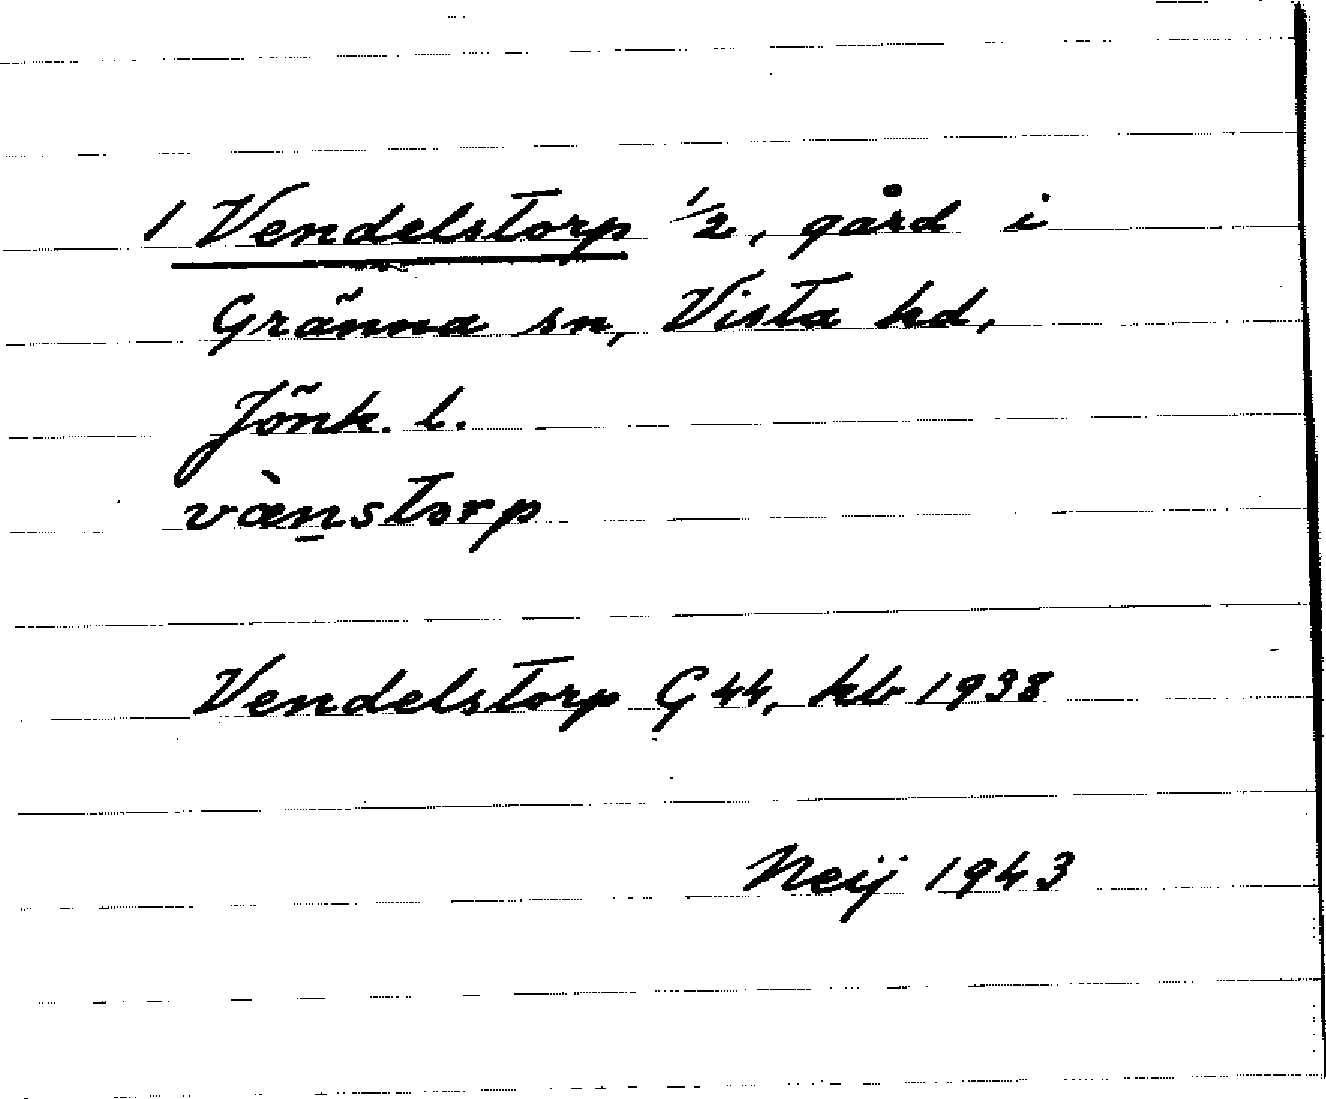 1 Vendelstorp 1/2, gård i
Gränna sn, Vista hd,
Jönk. l.
væ̀n̠storp
Vendelstorp G 44, kb 1938
Neij 1943